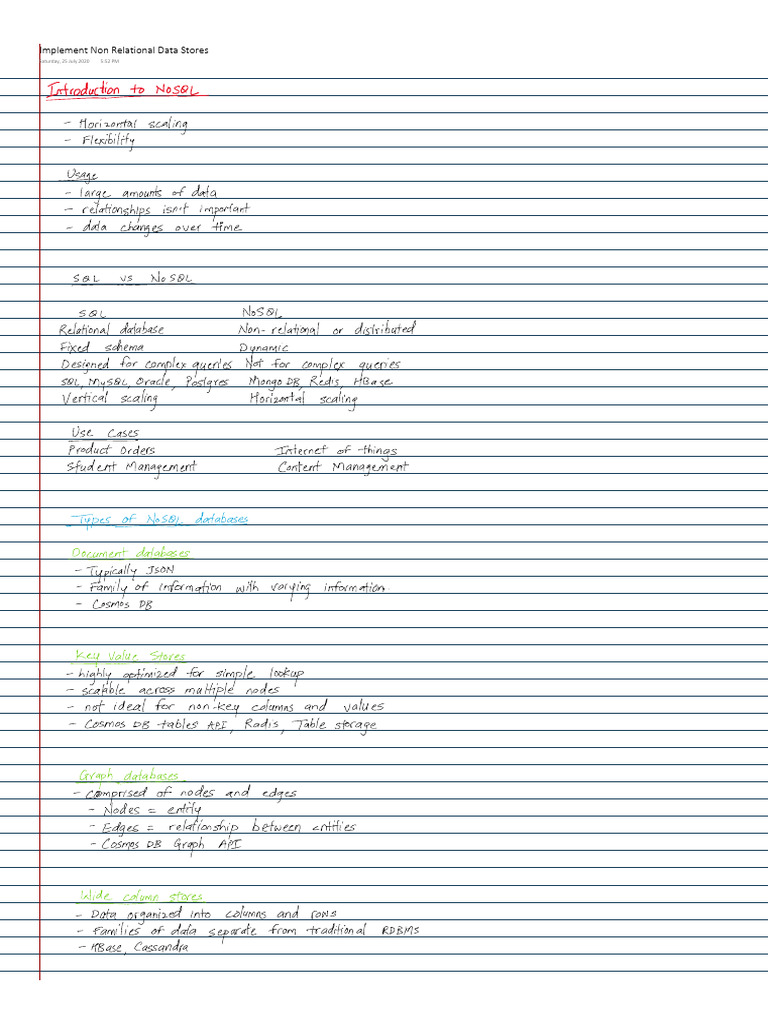 Implement Non Relational Data Stores
Saturday, 25 July 2020 5:52 PM
Introduction to NoSQL
- Horizontal scaling
- Flexibility
Usage
- large amounts of data
- relationships isn't important
- data changes over time
SQL vs NoSQL
SQL NoSQL
Relational database Non-relational or distributed
Fixed schema Dynamic
Designed for complex queries Not for complex queries
SQL, MySQL, Oracle, Postgres MongoDB, Redis, HBase
Vertical scaling Horizontal scaling
Use Cases
Product Orders Internet of things
Student Management Content Management
Types of NoSQL databases
Document databases
- Typically JSON
- Family of information with varying information.
- Cosmos DB
Key Value Stores
- highly optimized for simple lookup
- scalable across multiple nodes
- not ideal for non-key columns and values
- Cosmos DB tables API, Radis, Table storage
Graph databases
- comprised of nodes and edges
- Nodes = entity
- Edges = relationship between entities
- Cosmos DB Graph API
Wide column stores
- Data organized into columns and rows
- Families of data separate from traditional RDBMS
- HBase, Cassandra